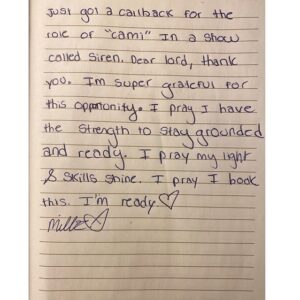 Just got a callback for the
role of "cami" In a show
called Siren. Dear lord, thank
you. Im super grateful for
this opportunity. I pray I have
the strength to stay grounded
and ready. I pray my light
& skills shine. I pray I book
this. I'm ready ♡